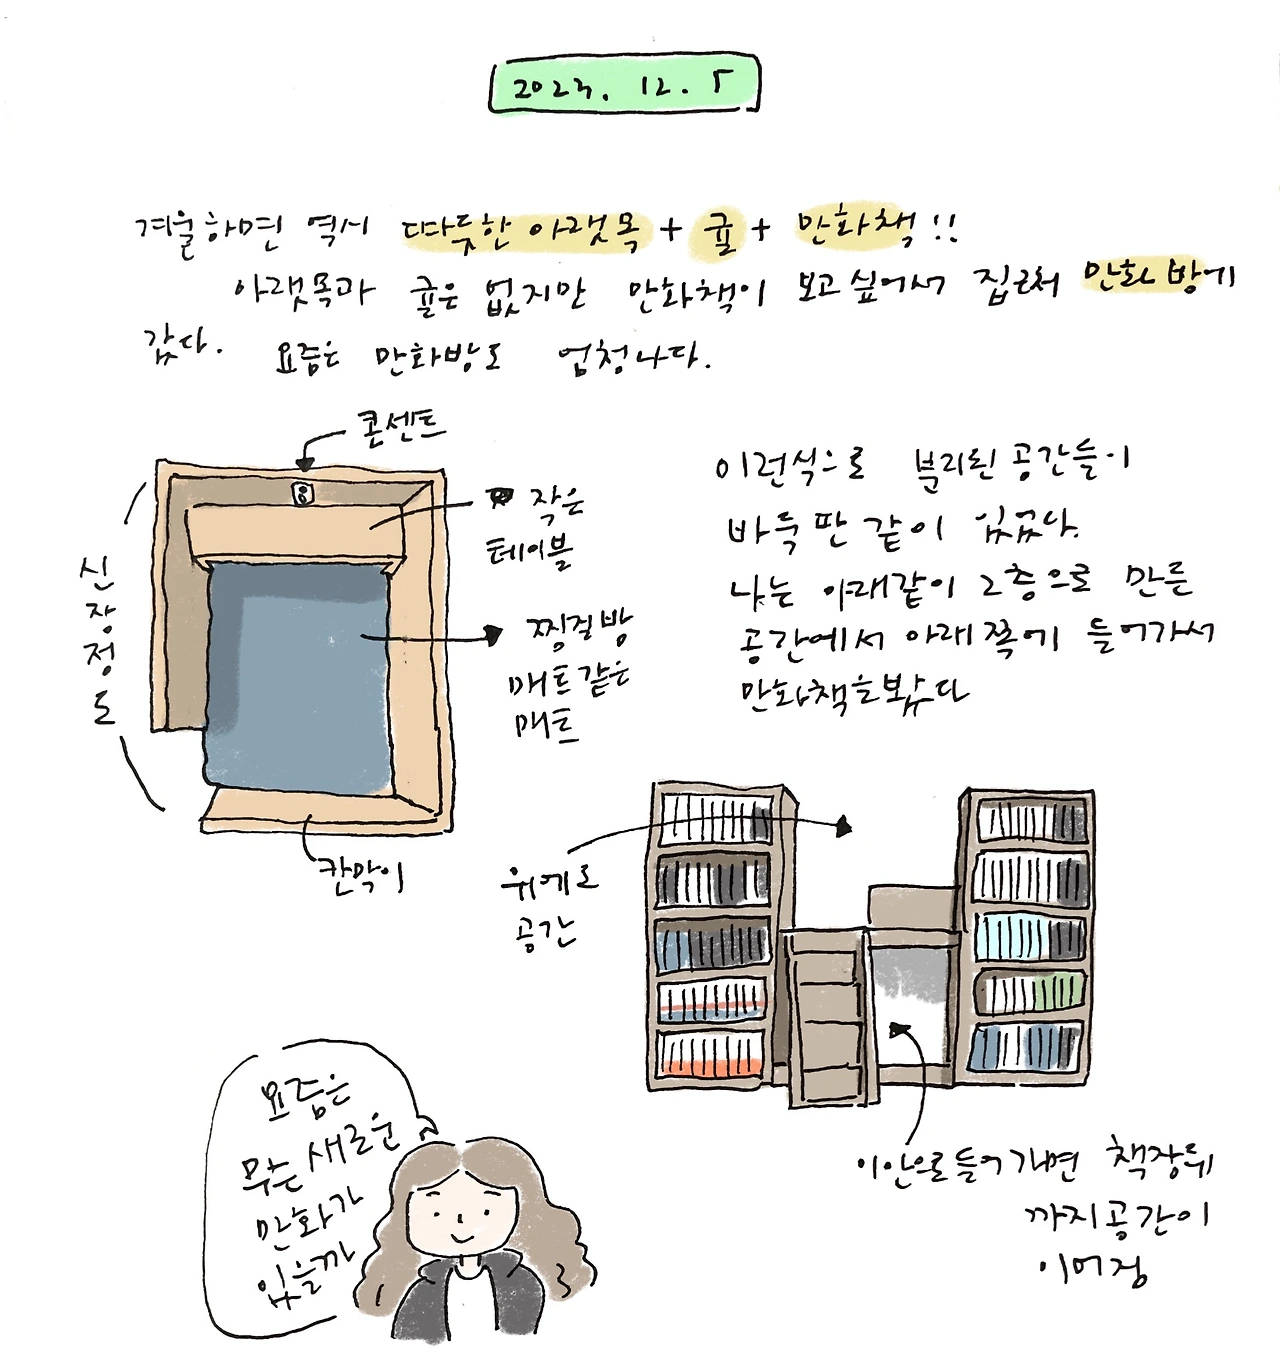 2023. 12. 5
겨울하면 역시 따뜻한 아랫목 + 귤 + 만화책!!
아랫목과 귤은 없지만 만화책이 보고싶어서 집근처 만화방에
갔다. 요즘은 만화방도 엄청나다.
콘센트
작은
테이블
신장정도
찜질방
매트같은
매트
칸막이
이런식으로 분리된 공간들이
바둑판 같이 있었다.
나는 아래같이 2층으로 만든
공간에서 아래쪽에 들어가서
만화책을봤다
위에도
공간
이안으로들어가면 책장뒤
까지공간이
이어짐
요즘은
무슨 새로운
만화가
있을까